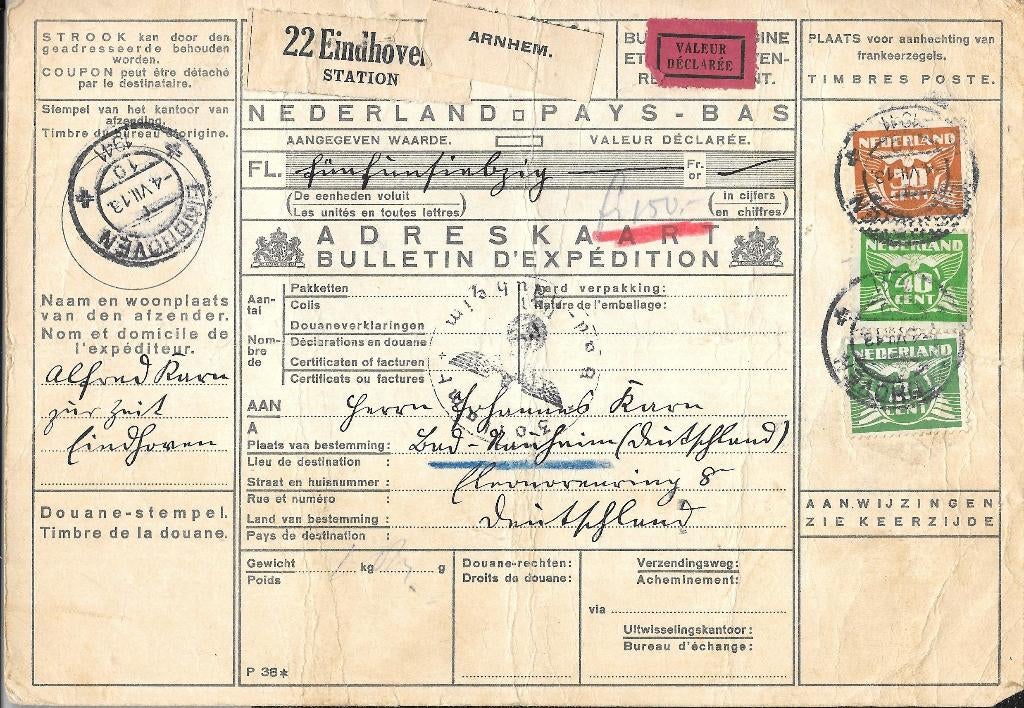 STROOK kan door den
geadresseerde behouden
worden.
COUPON peut être détaché
par le destinataire.
Stempel van het kantoor van
afzending.
Timbre du bureau d'origine.
1941
10
-4.VII.13
EINDHOVEN
Naam en woonplaats
van den afzender.
Nom et domicile de
l'expéditeur.
Alfred Karn
zur Zeit
Eindhoven
Douane-stempel.
Timbre de la douane.
22 Eindhoven
STATION
ARNHEM.
VALEUR
DÉCLARÉE
NEDERLAND PAYS-BAS
AANGEGEVEN WAARDE. VALEUR DÉCLARÉE.
FL. fünfundsiebzig Fr. or
De eenheden voluit
Les unités en toutes lettres
in cijfers
en chiffres
150.-
ADRESKAART
BULLETIN D'EXPÉDITION
Aantal
Pakketten Aard verpakking:
Colis Nature de l'emballage:
Nombre de
Douaneverklaringen
Déclarations en douane
Certificaten of facturen
Certificats ou factures
AAN Herrn Johannes Karn
A
Plaats van bestemming: Bad-Nauheim (Deutschland)
Lieu de destination :
Straat en huisnummer: Eleonorenring 8
Rue et numéro :
Land van bestemming: Deutschland
Pays de destination :
Gewicht kg g
Poids
Douane-rechten:
Droits de douane:
Verzendingsweg:
Acheminement:
via
Uitwisselingskantoor:
Bureau d'échange:
P 38*
PLAATS voor aanhechting van
frankeerzegels.
TIMBRES POSTE.
NEDERLAND
CENT
NEDERLAND
40
CENT
NEDERLAND
CENT
AANWIJZINGEN
ZIE KEERZIJDE